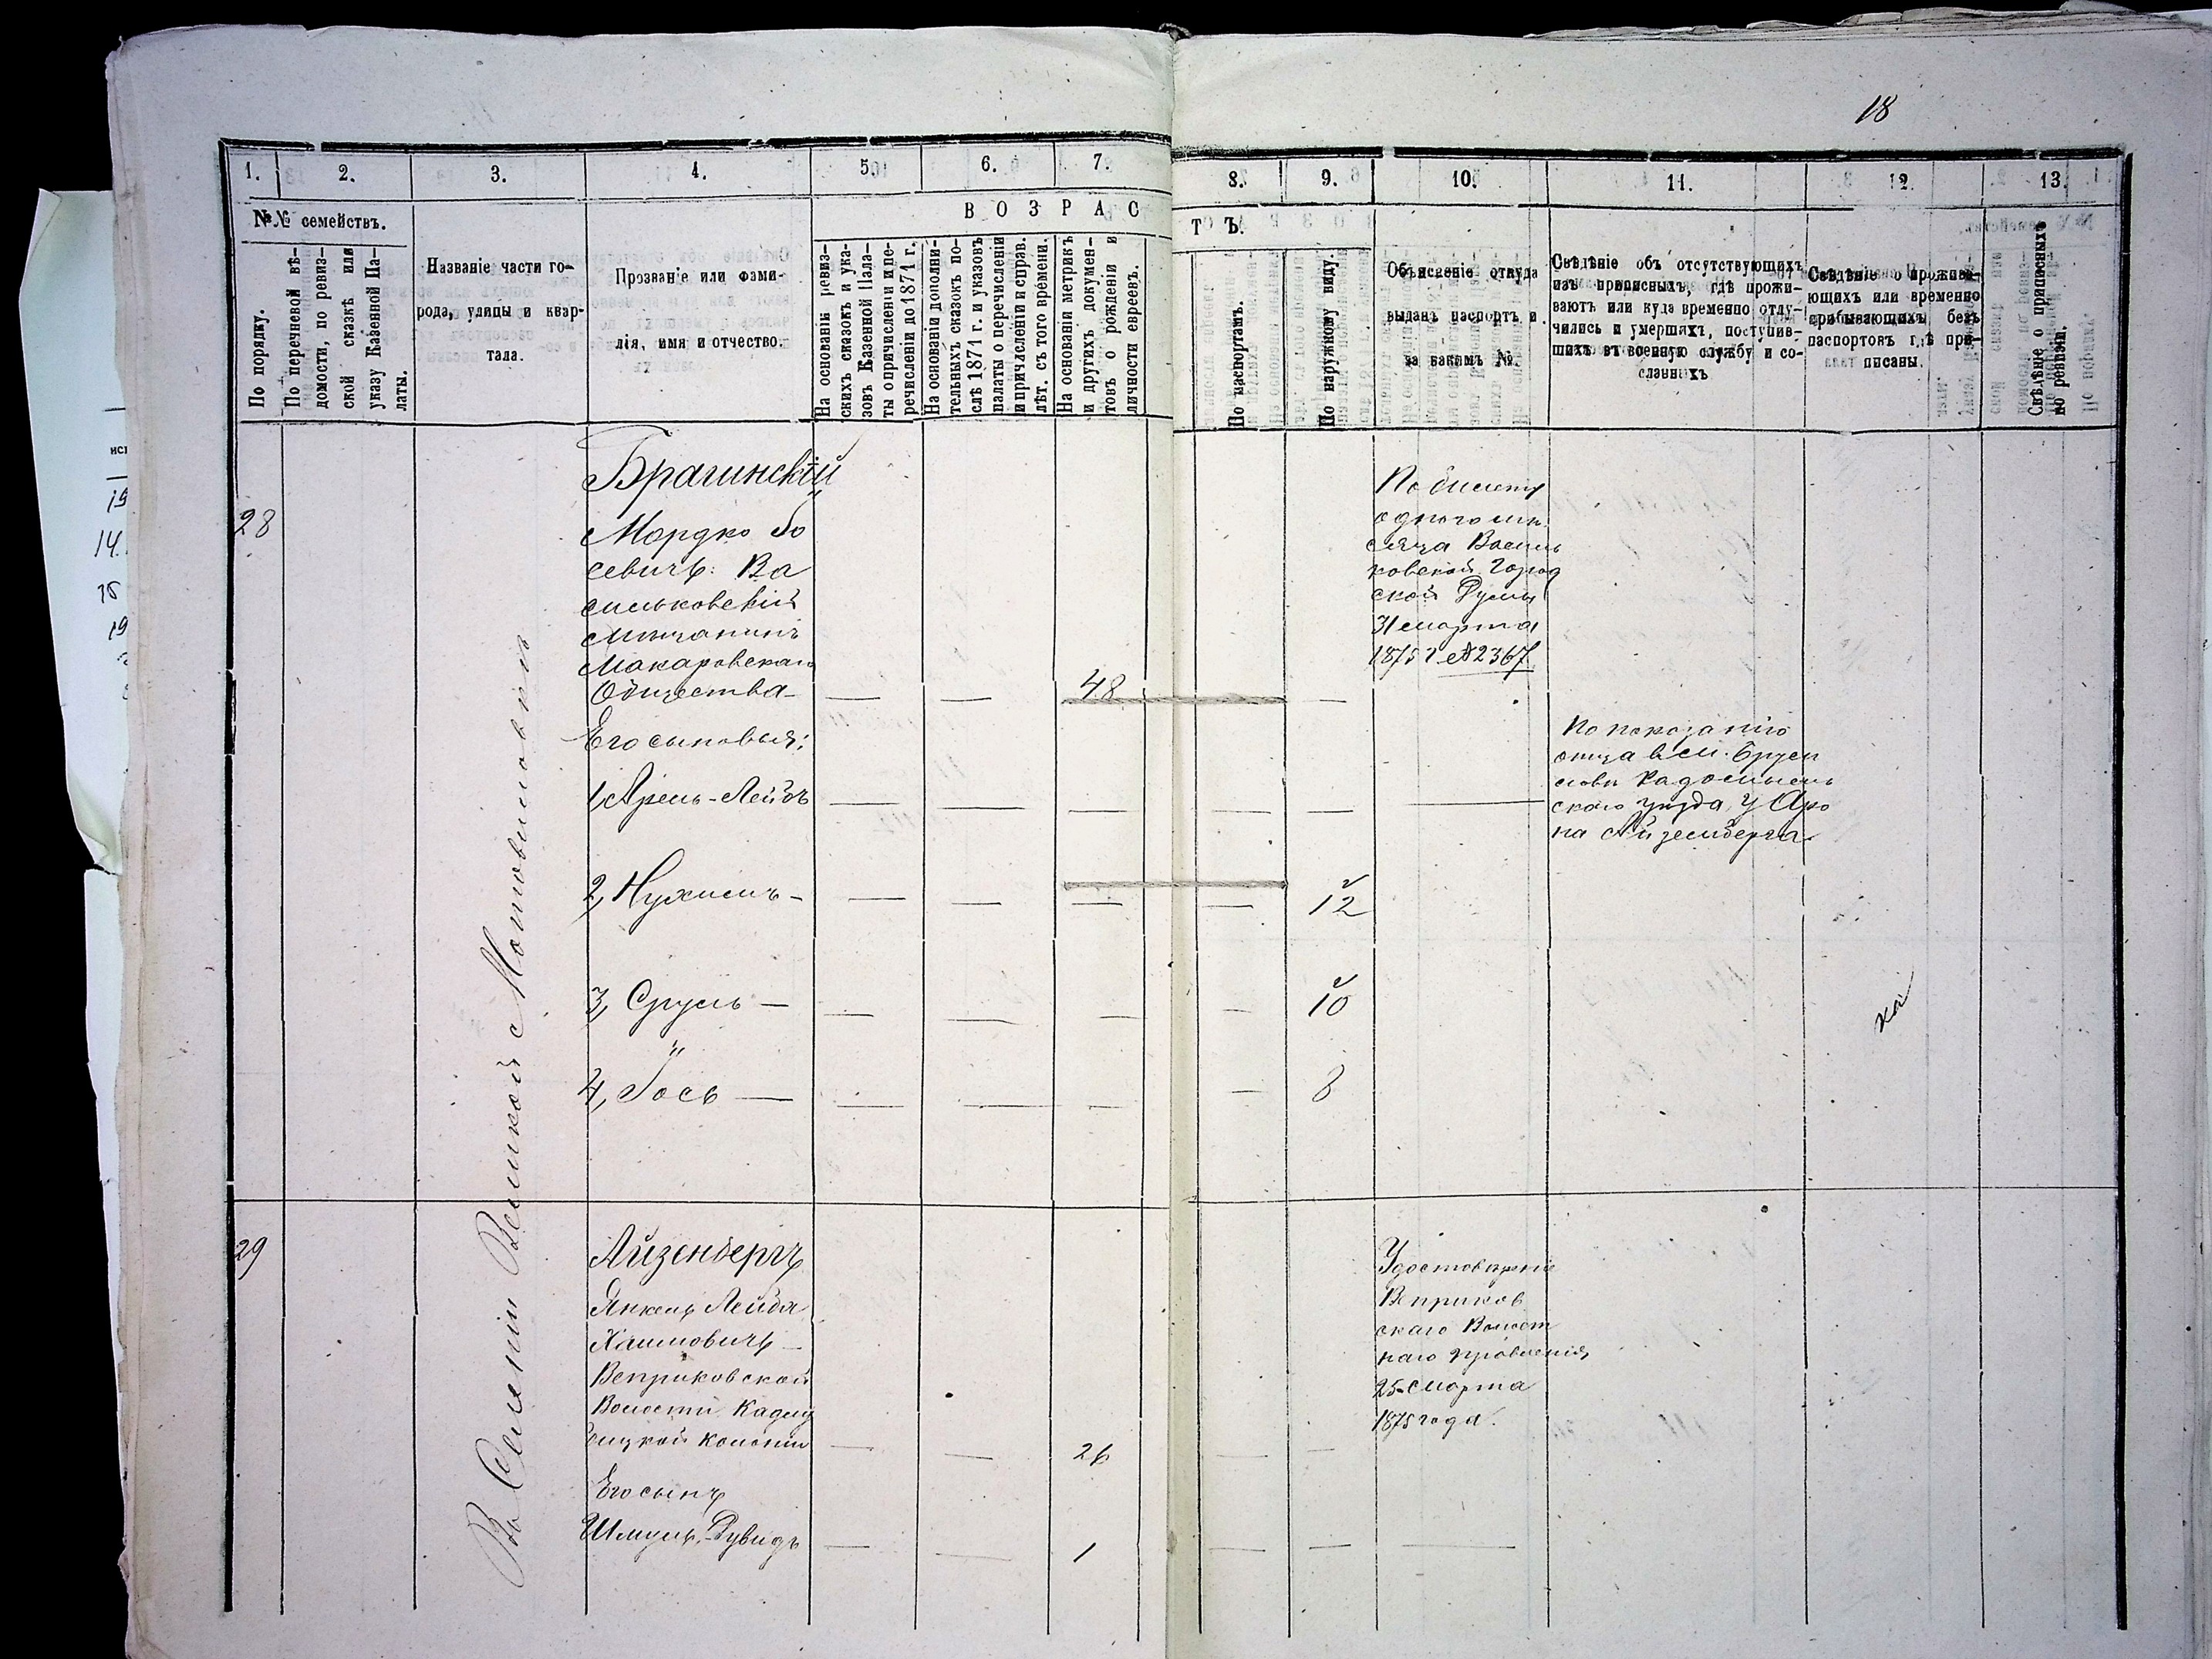 18
1. 2. 3. 4. 5. 6. 7. 8. 9. 10. 11. 12. 13.
№№ семействъ.
ВОЗРАСТЪ.
По порядку.
По перечневой вѣ-
домости, по ревиз-
ской сказкѣ или
указу Казенной Па-
латы.
Названіе части го-
рода, улицы и квар-
тала.
Прозваніе или фами-
лія, имя и отчество.
На основаніи ревиз-
скихъ сказокъ и ука-
зовъ Казенной Пала-
ты о причисленіи и пе-
речисленіи до 1871 г.
На основаніи дополни-
тельныхъ сказокъ по-
слѣ 1871 г. и указовъ
палаты о перечисленіи
и причисленіи и справ.
лѣт. съ того времени.
На основаніи метрикъ
и другихъ докумен-
товъ о рожденіи и
личности евреевъ.
По паспортамъ.
По наружному виду.
Объясненіе откуда
выданъ паспортъ и
за какимъ №.
Свѣдѣніе объ отсутствующихъ
изъ приписныхъ, гдѣ прожи-
ваютъ или куда временно отлу-
чились и умершихъ, поступив-
шихъ въ военную службу и со-
сланныхъ
Свѣдѣніе о прожива-
ющихъ или временно
прибывающихъ безъ
паспортовъ гдѣ при-
писаны.
Свѣдѣніе о приписныхъ
по ревизіи.
Въ Селеніи Великой Мотовиловкѣ
28
Брагинскій
Мордко Іо
севичъ. Ва
сильковскій
мѣщанинъ
Макаровскаго
Общества — — — 48 —
По билету
одного мѣ
сяца Василь
ковской Город
ской Думы
31 марта
1875 г. № 2367
Его сыновья:
1, Арель-Лейбъ — — — — —
По показанію
отца въ м. Бруси
ловѣ Радомысль
скаго уѣзда у Аро
на Айзенберга
2, Нухимъ — — — — — 12
3, Сруль — — — — — 10
4, Іось — — — — — 8
29
Айзенбергъ
Янкель Лейба
Хаимовичъ —
Веприковской
Волости Кадлу
бицкой колоніи — — 26 — —
Удостовѣреніе
Веприков
скаго Волост
наго правленія
25 марта
1875 года.
Его сынъ
Шмуль-Дувидъ — — 1 — — —